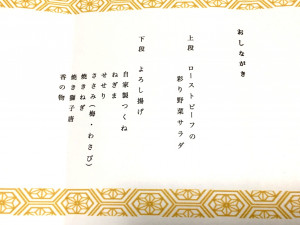 おしながき
上段 ローストビーフの
彩り野菜サラダ
下段 よろし揚げ
自家製つくね
ねぎま
せせり
ささみ(梅・わさび)
焼きねぎ
焼き獅子唐
香の物